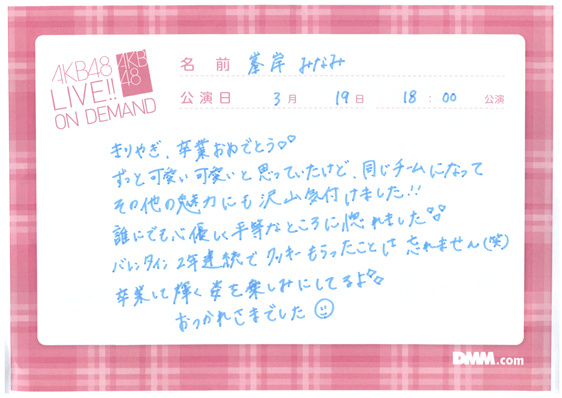 AKB48
LIVE!!
ON DEMAND
AKB
48
名 前 峯岸 みなみ
公演日 3月 19日 18:00 公演
きりやぎ、卒業おめでとう♡♡
ずっと可愛い可愛いと思っていたけど、同じチームになって
その他の魅力にも沢山気付けました!!
誰にでも心優しく平等なところに惚れました♡♡
バレンタイン2年連続でクッキーもらったことは忘れません(笑)
卒業して輝く姿を楽しみにしてるよ♡♡
おつかれさまでした☺
DMM.com